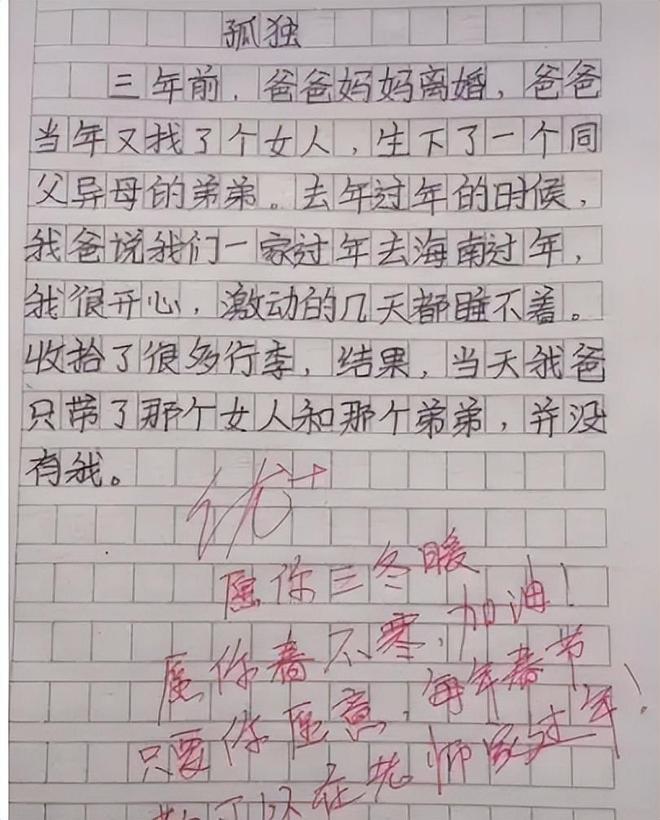 孤独
三年前，爸爸妈妈离婚，爸爸
当年又找了个女人，生下了一个同
父异母的弟弟。去年过年的时候，
我爸说我们一家过年去海南过年，
我很开心，激动的几天都睡不着。
收拾了很多行李，结果，当天我爸
只带了那个女人和那个弟弟，并没
有我。
优++
愿你三冬暖
愿你春不寒，加油！
只要你愿意，每年春节
都可以在老师家过年！